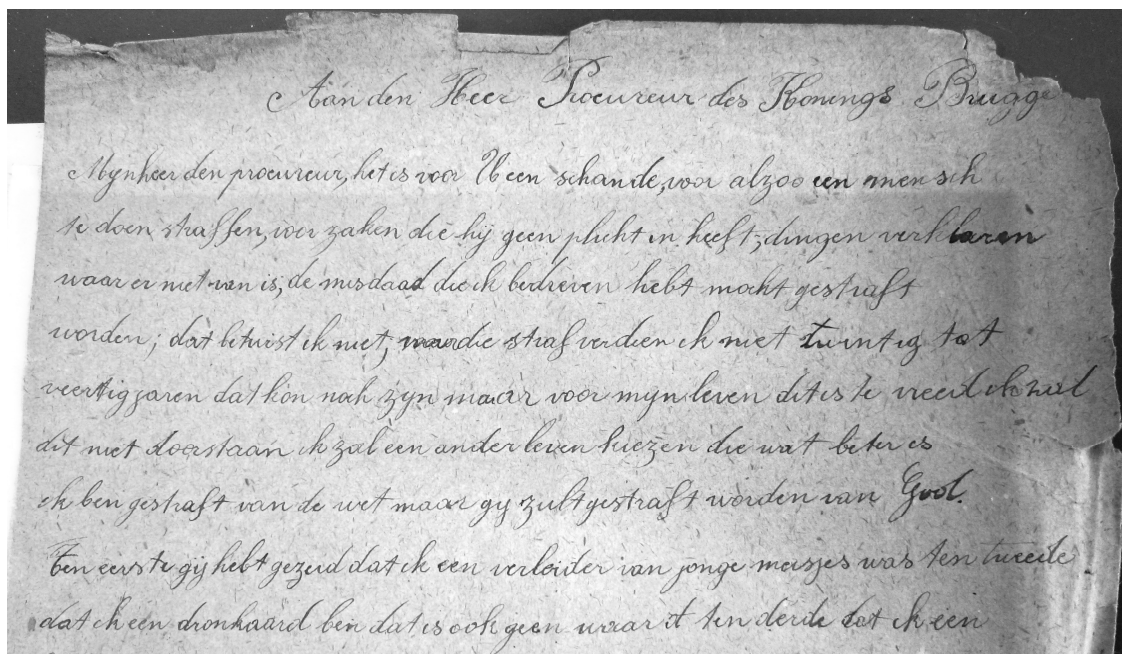 Aan den Heer Procureur des Konings Brugge
Mynheer den procureur, het is voor U een schande, voor alzoo een mensch
te doen straffen, voor zaken die hij geen plicht in heeft; dingen verklaren
waar er niet van is, de misdaad die ik bedreven hebt mocht gestraft
worden; dat betwist ik niet, maar die straf verdien ik niet twintig tot
veertig jaren dat kon noch zyn maar voor myn leven dit is te vreed ik zal
dit niet doorstaan ik zal een ander leven kiezen die wat beter is
ik ben gestraft van de wet maar gy zult gestraft worden van God.
Ten eerste gij hebt gezeid dat ik een verleider van jonge meisjes was ten tweede
dat ik een dronkaard ben dat is ook geen waar ten derde dat ik een